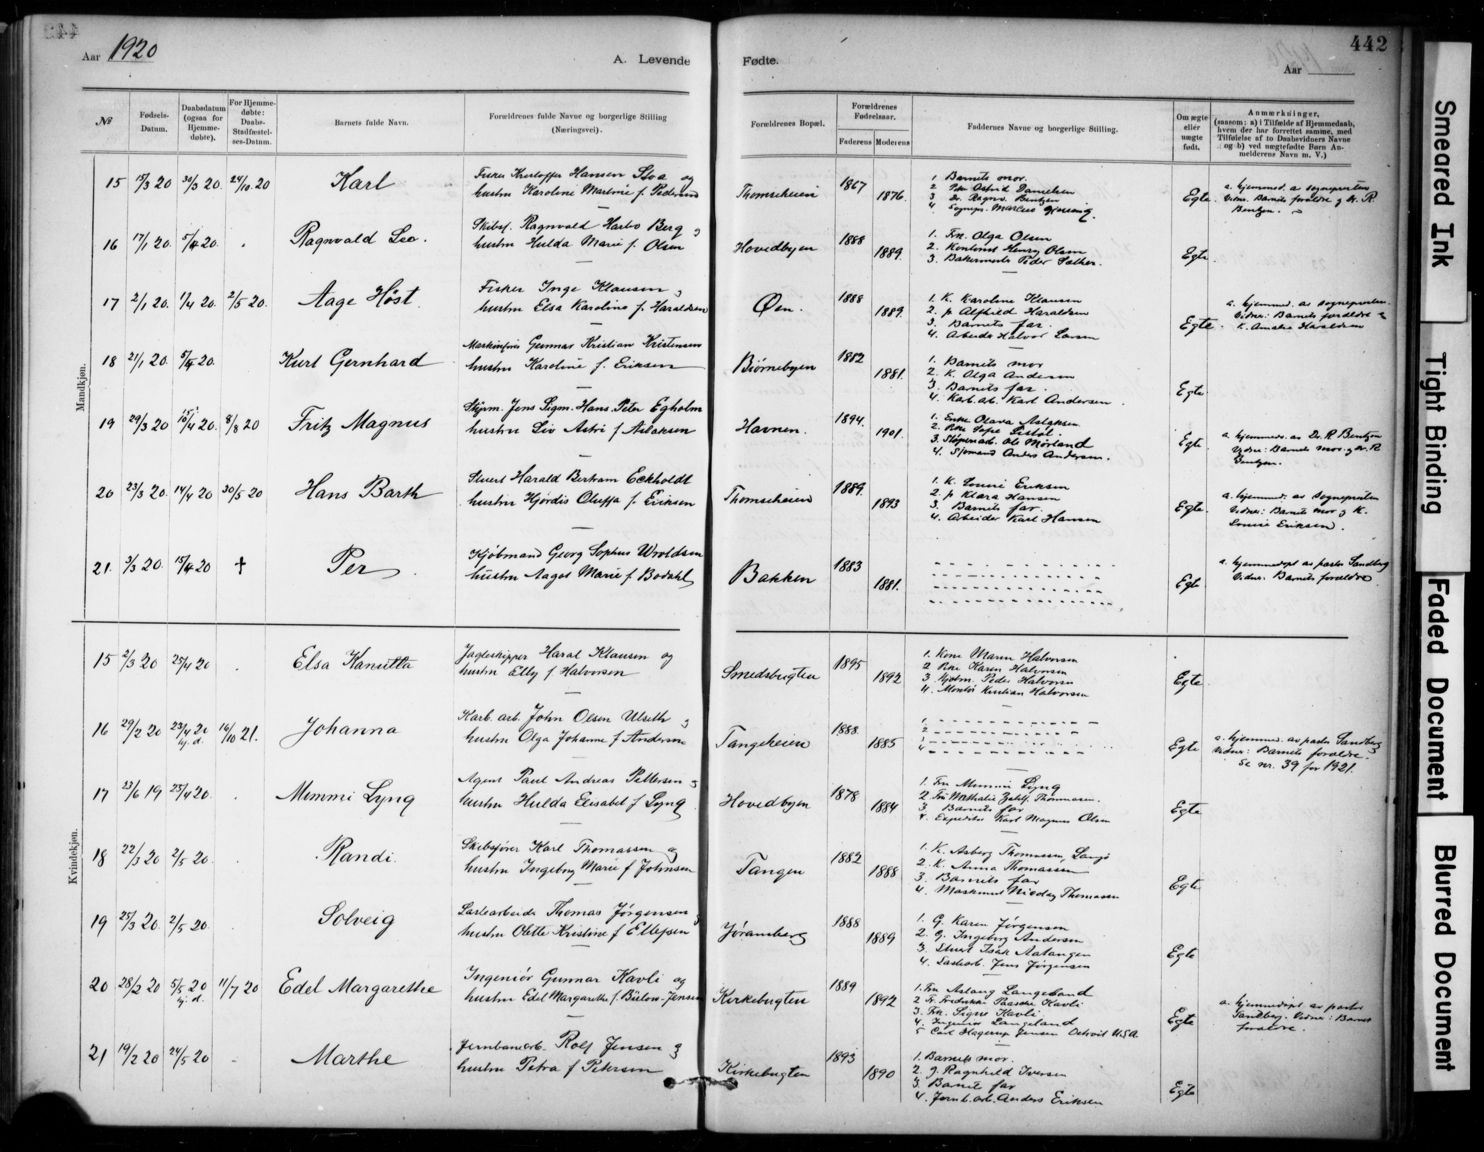 442
Aar 1920
A. Levende Fødte.
Aar
№ | Fødsels-Datum. | Daabsdatum (ogsaa for Hjemme-døbte). | For Hjemme-døbte: Daabs-Stadfæstel-ses-Datum. | Barnets fulde Navn. | Forældrenes fulde Navne og borgerlige Stilling (Næringsvei). | Forældrenes Bopæl. | Forældrenes Fødselsaar. Faderens Moderens | Faddernes Navne og borgerlige Stilling. | Om ægte eller uægte født. | Anmærkninger, (saasom: a) i Tilfælde af Hjemmedaab, hvem der har forrettet samme, med Tilføielse af to Daabsvidners Navne og b) ved uægtefødte Børn An-melderens Navn m. V.)
Mandkjøn.
15 15/3 20 30/3 20. 24/10.20 Karl
Fisker Kristoffer Hansen Sloa og
hustru Karoline Martine f. Pedersen
Thomseheien 1867 1876.
1. Barnets mor.
2 Frk Astrid Danielsen
3. Dr. Ragnv. Bentzen
4. Sognepr.
Egte.
a. hjemmed. a sognepresten
Vidner. Barnets foraldre og dr. R
Bentzen.
16 17/1 20. 5/4 20. Ragnvald Leo.
Skibsf. Ragnvald Harbo Berg og
hustru Hulda Marie f. Olsen
Hovedbyen 1888 1889.
1. Frk. Olga Olsen
2. Kontorist Henry Olsen
3. Bakermester Peder Sather.
Egte.
17 2/1 20. 11/4 20. 2/5 20. Aage Høst.
Fisker Inge Klausen og
hustru Elsa Karoline f. Haraldsen
Øen. 1888 1889.
1. K. Karoline Klausen
2. p Alfhild Haraldsen
3. Barnets far.
4. Arbeider Halvor Larsen
Egte.
a. hjemmed. av sognepresten.
Vidner: Barnets foraldre og
K. Amalie Haraldsen
18 21/1 20. 5/4 20. Kurt Gernhard
Maskinfører Gunnar Kristian Kristensen
hustru Karoline f. Eriksen
Biørnebyen 1882 1881.
1. Barnets mor
2. K. Olga Andersen
3. Barnets far.
4. Karb. arb. Karl Andersen.
Egte.
19 29/3 20 15/4 20. 8/8 20 Fritz Magnus
Styrm. Jens Sigm. Hans. Peter Egholm
hustru Liv Astri f. Aslaksen
Havnen. 1894. 1901.
1. Enke Olava Aslaksen
2. Frk.
3. Sløperiarb. Ole Mørland
4. Sjømand Anders Andersen.
Egte.
a. hjemmedø. av Dr. R Bentzen
Vidner: Barnets mor. og dr. R
Bentzen.
20 23/3 20. 14/4 20 30/5 20 Hans Barth
Stuert Harald Bertram Eckholdt
hustru Hjørdis Oluffa f. Eriksen
Thomseheien 1889. 1893
1. K. Louise Eriksen
2. p Klara Hansen
3. Barnets far.
4. Arbeider Karl Hansen
Egte.
a. hjemmed. av sognepresten
Vidner: Barnets mor og K.
Louise Eriksen.
21. 3/3 20. 15/4 20 † Per
Kjøbmand Georg Sophus Wroldsen
hustru Aagot Marie f. Bodahl
Bakken 1883 1881.
Egte
a. hjemmedøpt av pastor Sandberg
Vidner: Barnets foraldre.
Kvindekjøn.
15 2/3 20 25/4 20 Elsa Kanutta
Jagteskipper Haral Klausen og
hustru Elly f Halvorsen
Smedsbugten 1895 1892
1. Kone Maren Halvorsen
2 Frk Karen Halvorsen
3 Kjøbm. Peder Halvorsen
4. Montør Kristian Halvorsen
Egte
16 29/2 20 23/4 20 hj. d. 16/10 21. Johanna
Karb. arb. John Olsen Ulseth og
hustru Olga Johanne f Andersen
Tangeheien 1888. 1885
1.
2
3
4
Egte
a. hjemmed. av pastor Sandberg
Vidner: Barnets foraldre.
Se nr. 39 for 1921.
17 23/6 19 23/4 20. Memmi Lyng
Agent Paul Andreas Pettersen og
hustru Hulda Elisabet f Lyng
Hovedbyen 1878 1884
1. Fru Memmi Lyng
2. Fru Mathalie Thomassen.
3. Barnets far
4. Expeditør Karl Magnus Olsen
Egte
18 22/3 20 2/5 20. Randi.
Skibsfører Karl Thomassen og
hustru Ingeborg Marie f Johnsen
Tangen 1882 1888
1. K. Asberg Thomassen, Langø
2. K. Anna Thomassen
3. Barnets far
4. Maskinist Nicolay Thomassen
Egte
19 25/3 20 2/5 20. Solveig
Lastearbeider Thomas Jørgensen og
hustru Olette Kristine f Ellefsen
Jøransberg 1888 1889
1. G. Karen Jørgensen
2. G. Ingeborg Andersen
3. Stuert Isak Aatangen
4. Lastearb. Jens Jørgensen
Egte
20 28/2 20 5/5 20 hj. d. 11/7 20 Edel Margarethe
Ingeniør Gunnar Kavli og
hustru Edel Margarethe f. Bülow-Jensen
Kirkebugten 1889 1892
1. Fru Aslaug Langeland
2. Fr. Fredrikke Paaske Kavli
3. Frk. Signe Kavli
4. Ingeniør Langeland
5 Carl Hagerup Jensen U.S.A.
Egte
a. hjemmedøpt av pastor
Sandberg. Vidner: Barnets
foraldre.
21 19/2 20 24/5 20 Marthe
Jernbanearb. Rolf Jensen og
hustru Petra f Petersen
Kirkebugten 1893 1890
1. Barnets mor.
2. J. Ragnhild Iversen
3. Barnets far
4. Jernb. arb. Anders Eriksen
Egte
Smeared Ink
Tight Binding
Faded Document
Blurred Document